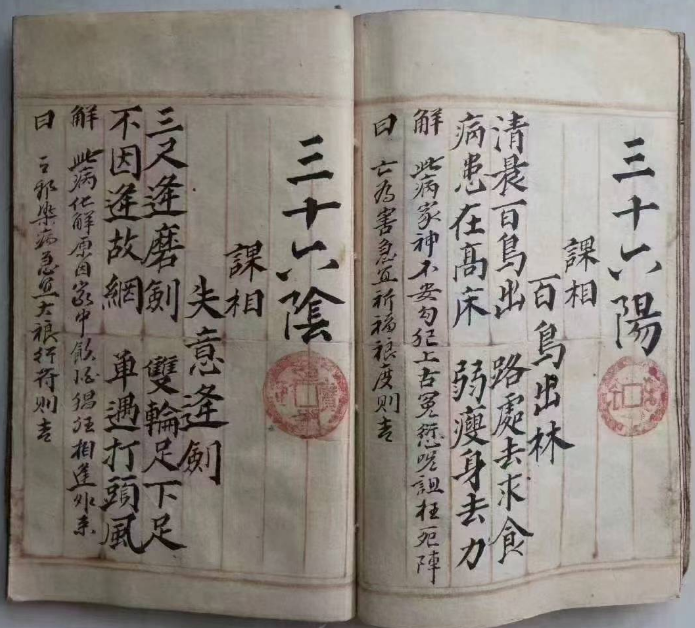 三十六陽
課相
百鳥出林
清晨百鳥出 路處去求食
病患在髙床 弱瘦身去力
解 此病家神不安勾犯上古冤愆咒詛枉死陣
曰 亡為害急宜祈福禳度則吉
三十六陰
課相
失意逢劍
三叉逢磨劍 雙輪足下足
不因逢故網 單遇打頭風
解 此病化解原因家中飲 猖狂相逢外來
曰 邪染病急宜大禳行符則吉